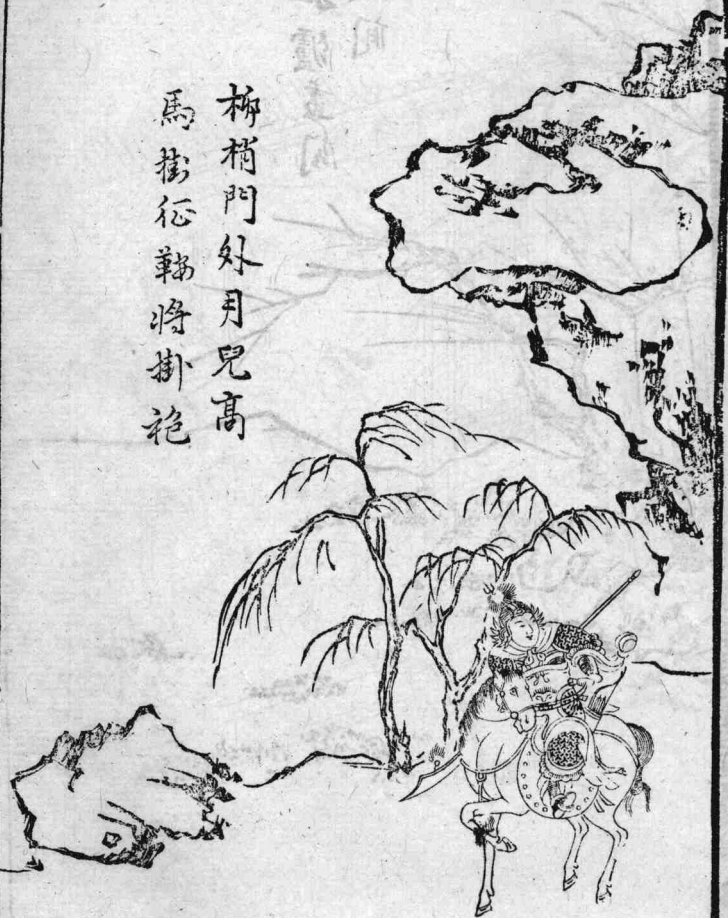 柳梢門外月兒高
馬掛征鞍将掛袍